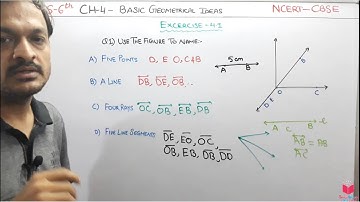 S-6th CH-4- BASIC GEOMETRICAL IDEAS NCERT-CBSE
EXCERCISE-4.1
Q1) USE THE FIGURE TO NAME:-
A) FIVE POINTS D, E O, C & B
B) A LINE DB, DE, OB, ..
C) FOUR RAYS OC, OB, EB, DB
D) FIVE LINE SEGMENTS DE, EO, OC,
OB, EB, DB, DO
5cm
A B
B
O C
E
D
A C B l
AB = AB
AC